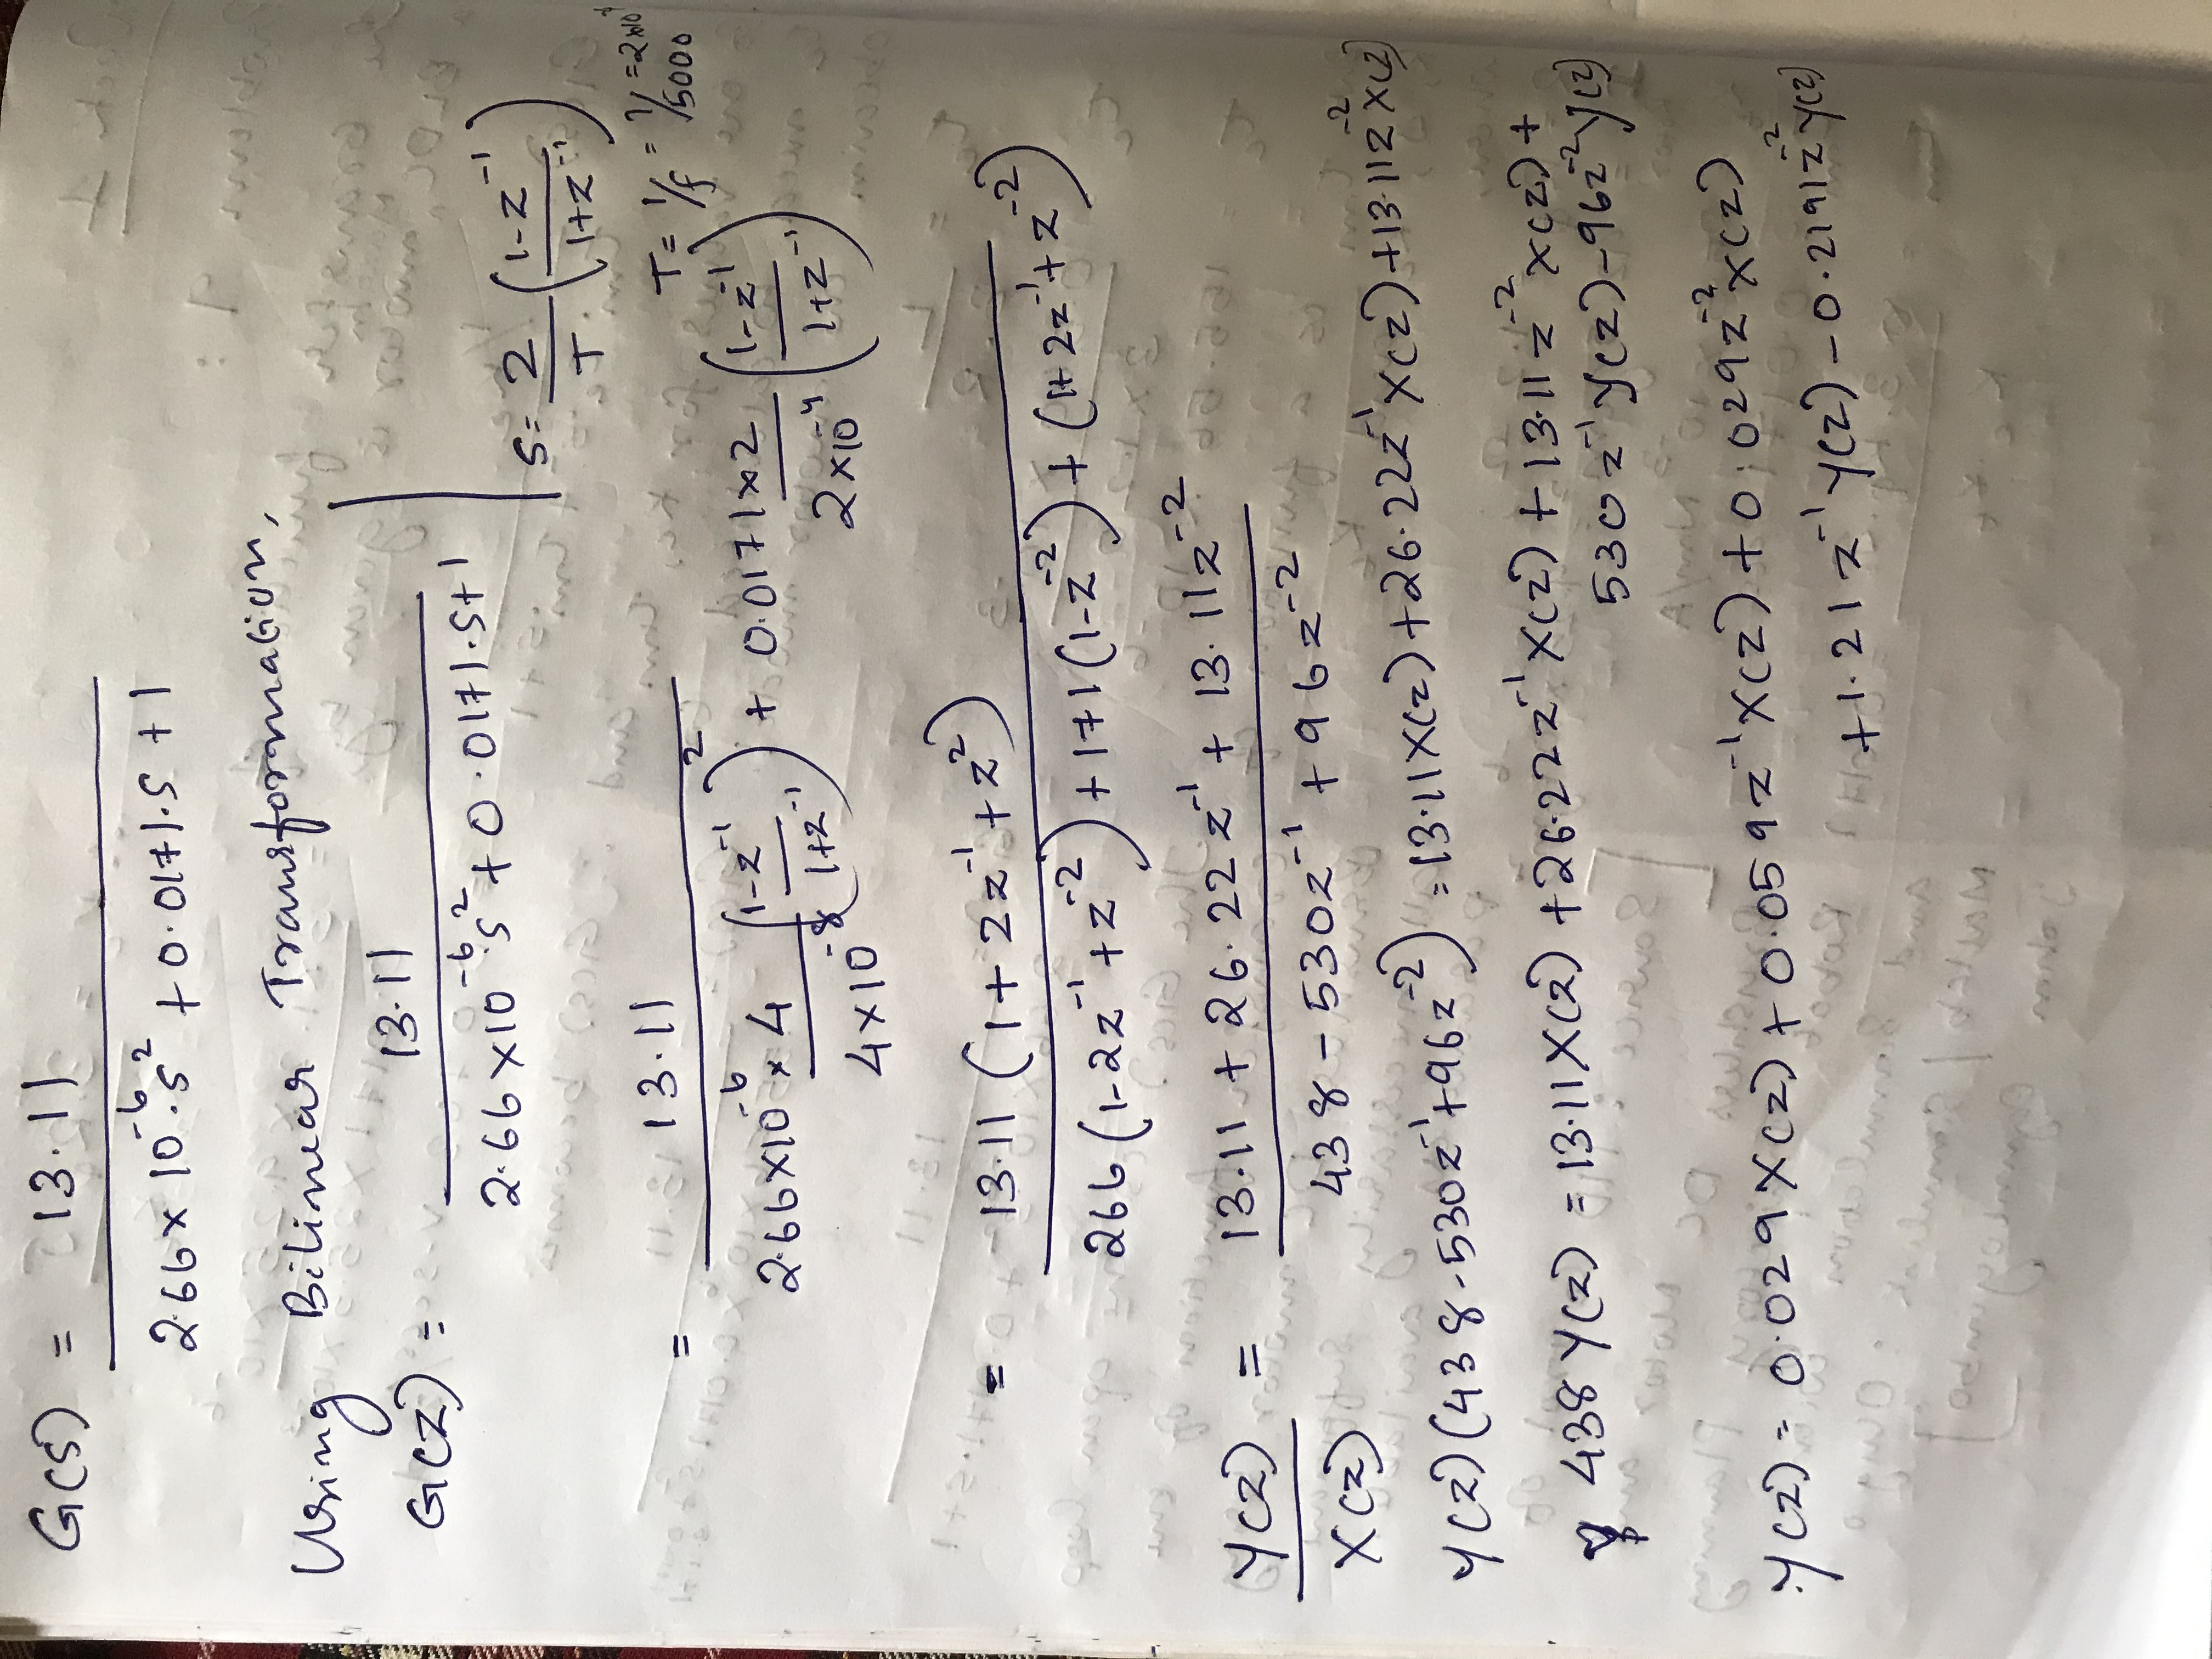 G(s) = 13.11 / 2.66 × 10^-6 · s^2 + 0.0171 · s + 1
Using Bilinear Transformation,
G(z) = 13.11 / 2.66 × 10^-6 · s^2 + 0.0171 · s + 1 | s = 2/T (1 - z^-1 / 1 + z^-1)
T = 1/f = 1/5000 = 2 × 10
= 13.11 / 2.66 × 10^-6 × 4 / 4 × 10^-8 (1 - z^-1 / 1 + z^-1)^2 + 0.0171 × 2 / 2 × 10^-4 (1 - z^-1 / 1 + z^-1)
= 13.11 (1 + 2z^-1 + z^2) / 266 (1 - 2z^-1 + z^-2) + 171 (1 - z^-2) + (1 + 2z^-1 + z^-2)
Y(z) / X(z) = 13.11 + 26.22 z^-1 + 13.11 z^-2 / 438 - 530 z^-1 + 96 z^-2
Y(z) (438 - 530 z^-1 + 96 z^-2) = 13.11 X(z) + 26.22 z^-1 X(z) + 13.11 z^-2 X(z)
438 Y(z) = 13.11 X(z) + 26.22 z^-1 X(z) + 13.11 z^-2 X(z) +
530 z^-1 Y(z) - 96 z^-2 Y(z)
Y(z) = 0.029 X(z) + 0.059 z^-1 X(z) + 0.029 z^-2 X(z)
+ 1.21 z^-1 Y(z) - 0.2191 z^-2 Y(z)